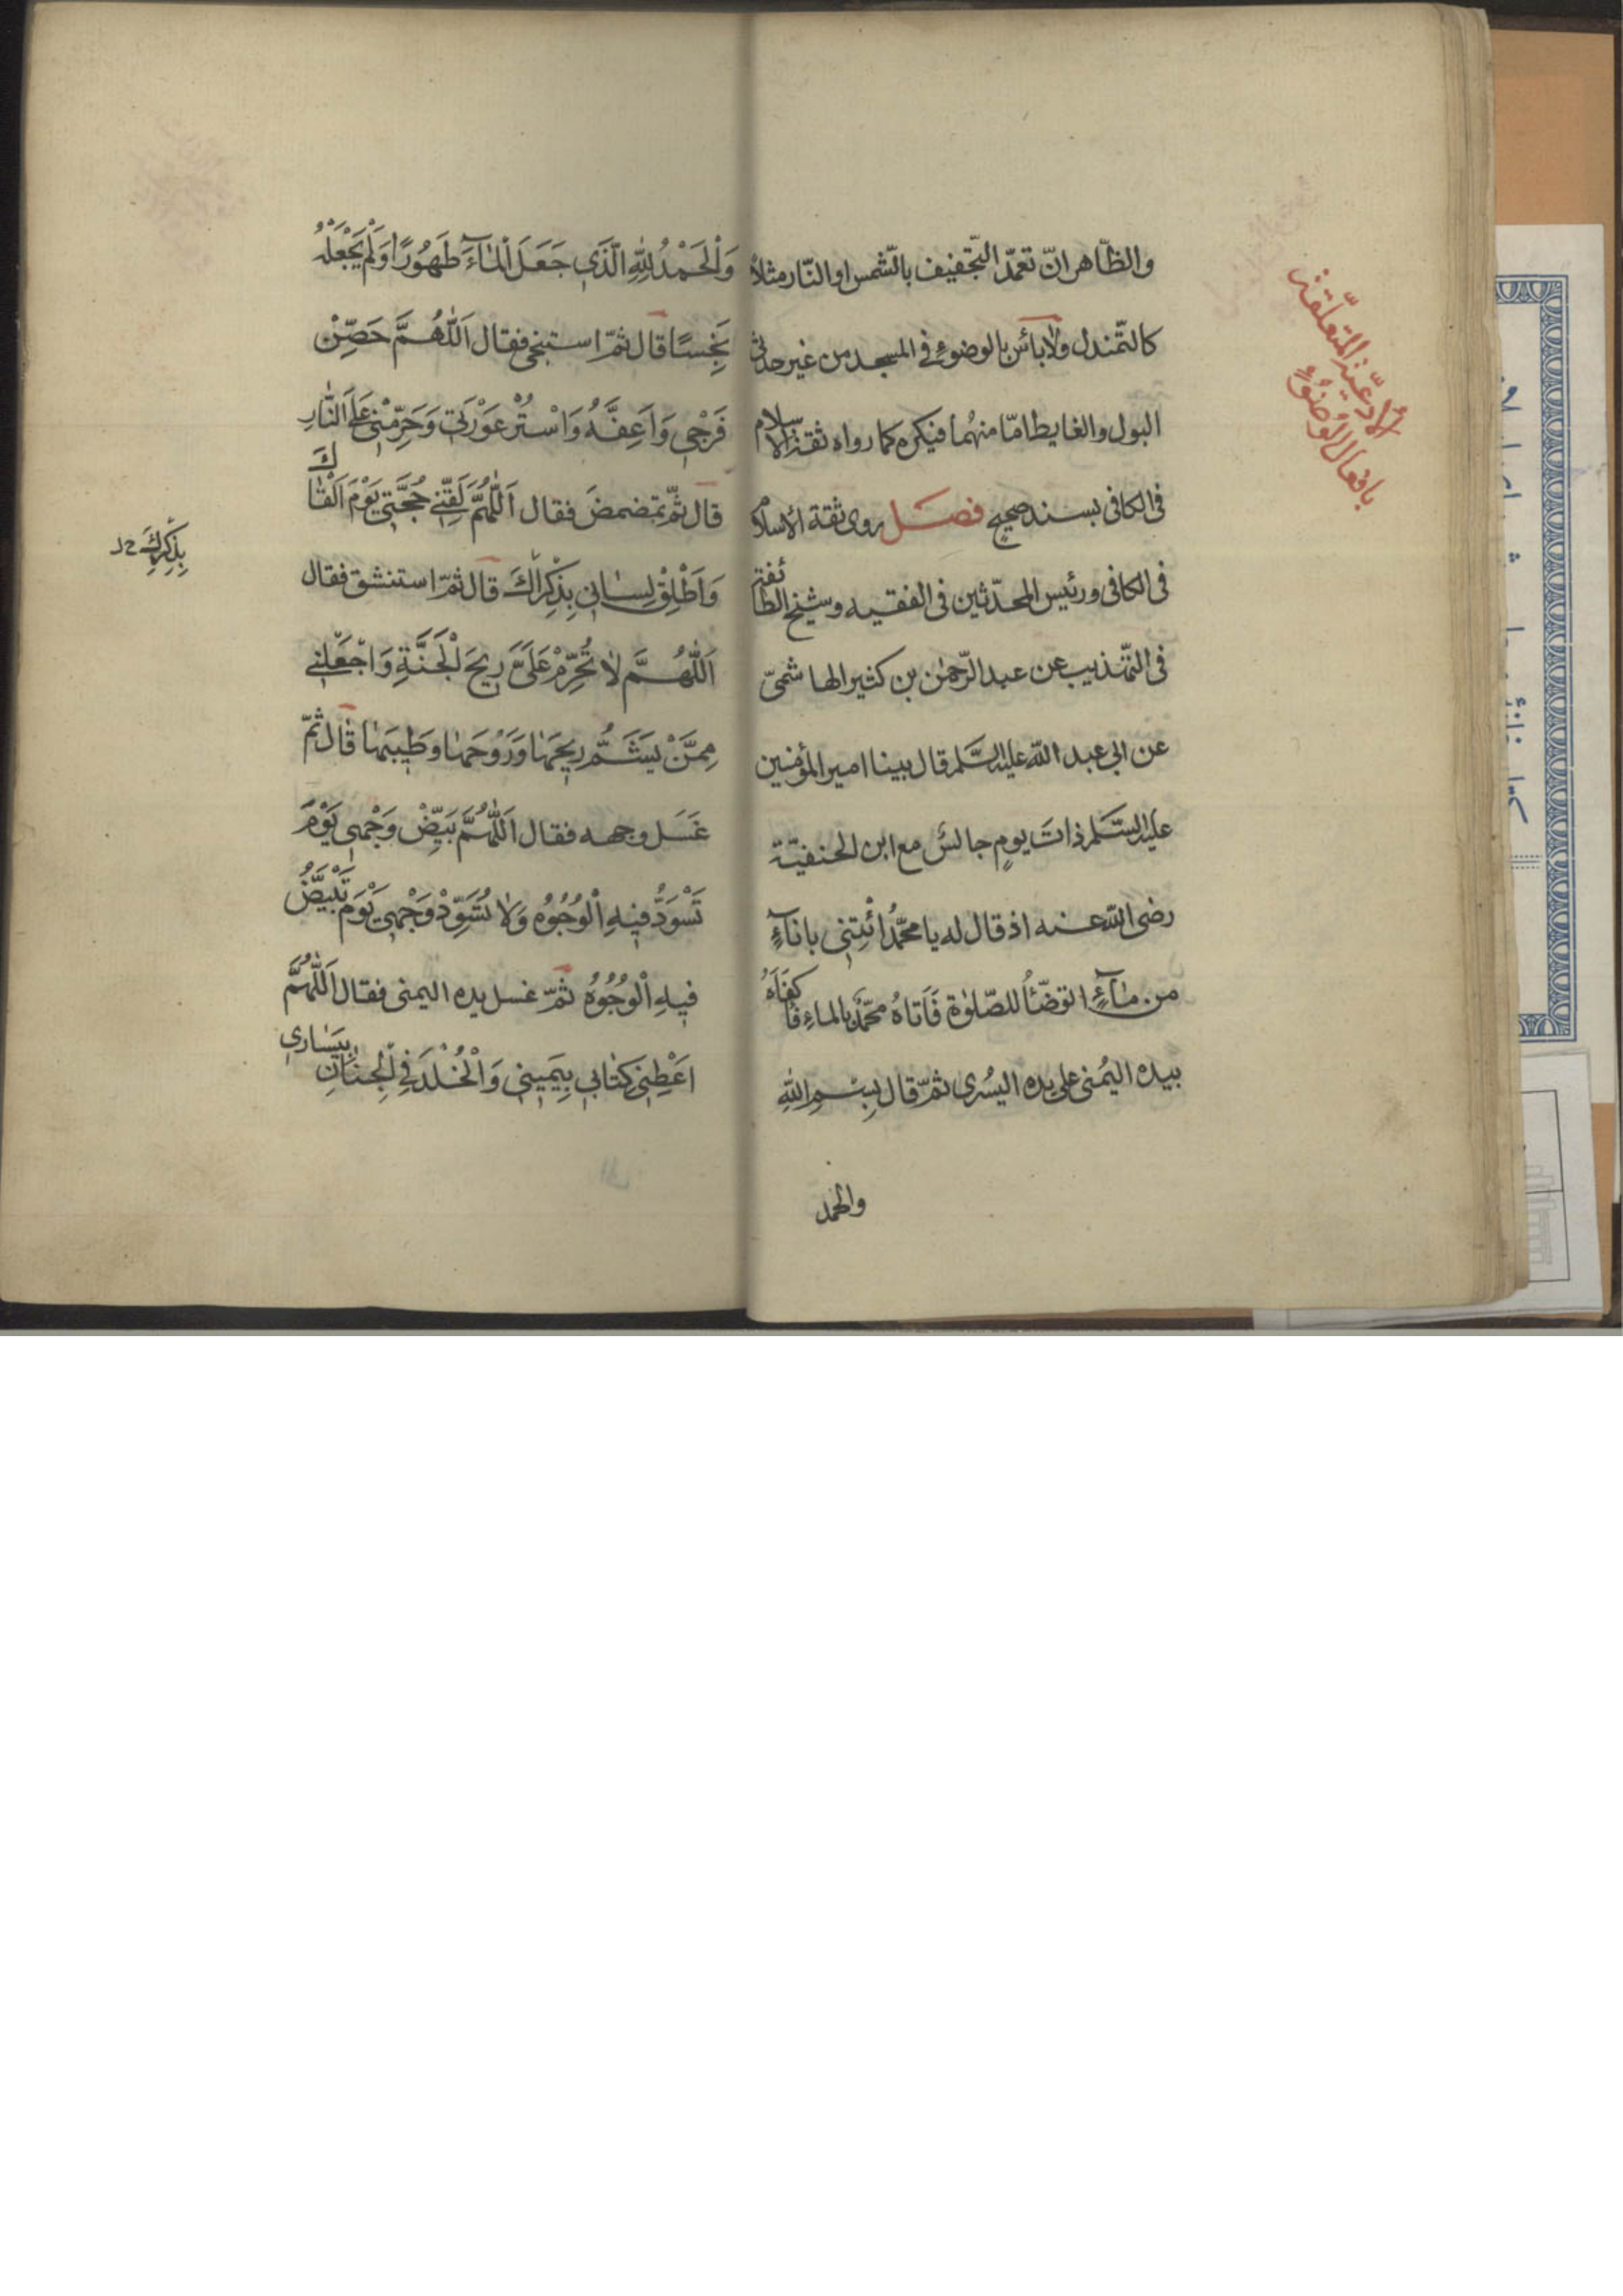 والظّاهر انّ تعمّد التّجفيف بالشّمس او النّار مثلاً
كالتّمندل ولا بأس بالوضوء في المسجد من غير حدثى
البول والغايط امّا منهما فيكره كما رواه ثقة الاسلام
فى الكافى بسند صحيح فصل روى ثقة الأسلام
فى الكافى ورئيس المحدّثين فى الفقيه وشيخ الطائفة
فى التّهذيب عن عبد الرّحمٰن بن كثير الهاشمىّ
عن ابى عبد اللّه عليه السّلم قال بينا امير المؤمنين
عليه السّلم ذاتَ يومٍ جالسٌ مع ابن الحنفيّة
رضى اللّه عنه اذ قال له يا محمّدُ ائْتِنى باناءٍ
من مآءٍ اتوضّأُ للصّلوٰة فَاَتاهُ محمّدٌ بالماءِ فَاكفَاَهُ
بيده اليُمنى على يده اليُسرى ثمّ قال بِسْمِ اللّٰهِ
والحمد
الأدعية المتعلّقة
بافعال الوضوء
وَالْحَمْدُ لِلّٰهِ الَّذي جَعَلَ الْمٰآءَ طَهُورًا وَلَمْ يَجْعَلْهُ
نَجِسًا قال ثمّ استنجى فقال اَللّٰهُمَّ حَصِّنْ
فَرْجي وَاَعِفَّهُ وَاسْتُرْ عَوْرَتي وَحَرِّمْني عَلَى النّٰارِ
قال ثمّ تمضمضَ فقال اَللّٰهُمَّ لَقِّنّي حُجَّتي يَوْمَ اَلْقٰاكَ
وَاَطْلِقْ لِسٰاني بِذِكْرٰاكَ قال ثمّ استنشق فقال
بِذِكْرِكَ خ ل
اَللّٰهُمَّ لٰا تُحَرِّمْ عَلَىَّ ريحَ الْجَنَّةِ وَاجْعَلْني
مِمَّنْ يَشَمُّ ريحَهٰا وَرَوْحَهٰا وَطيبَهٰا قال ثمّ
غَسَلَ وجهه فقال اَللّٰهُمَّ بَيِّضْ وَجْهي يَوْمَ
تَسْوَدُّ فيهِ الْوُجُوهُ وَلٰا تُسَوِّدْ وَجْهي يَوْمَ تَبْيَضُّ
فيهِ الْوُجُوهُ ثمّ غسل يده اليمنى فقال اَللّٰهُمَّ
اَعْطِني كِتٰابي بِيَميني وَالْخُلْدَ فِي الْجِنٰانِ بِيَسٰاري